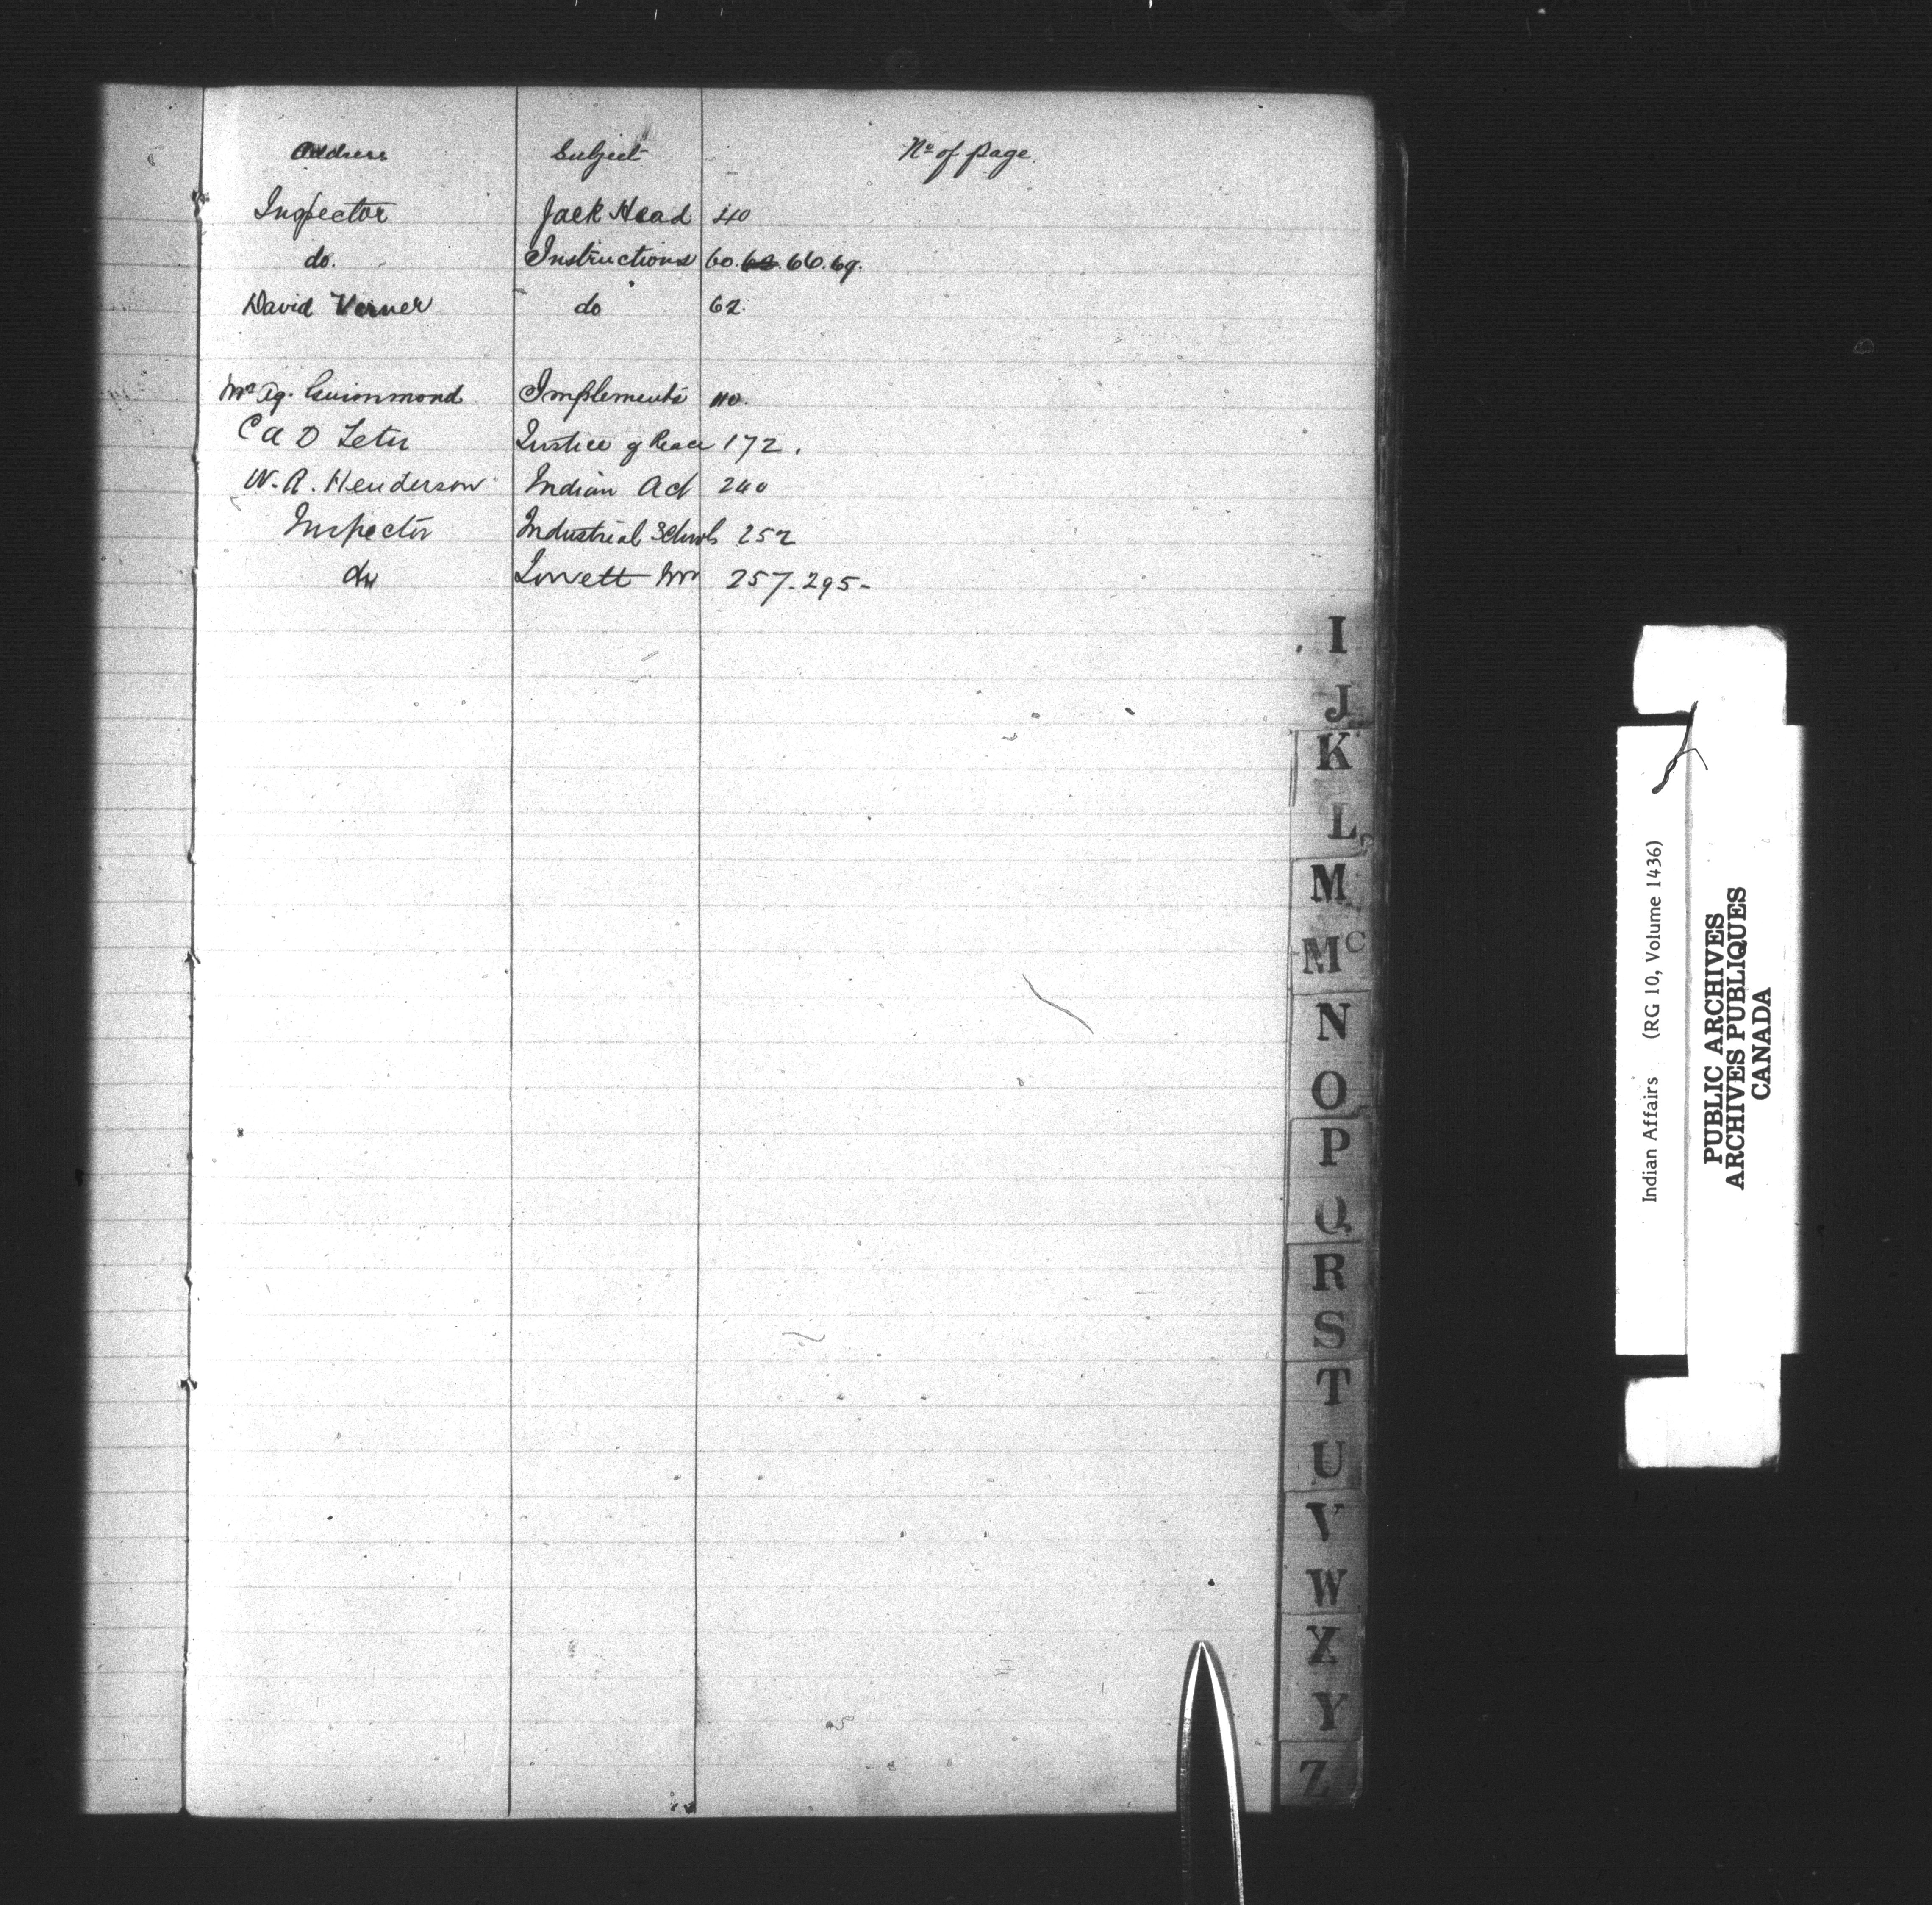 Address Subject No of page.
Inspector Jack Head 40
do. Instructions 60. 62. 66. 69.
David Verner do 62.
Mr Ag. Guimmond Implements 110.
C A D Justice of Peace 172.
W. A. Henderson Indian Act 240
Inspector Industrial Schools 252
do Lovett Mr 257. 295-
I
J
K
L
M
Mc
N
O
P
Q
R
S
T
U
V
W
X
Y
Z
Indian Affairs (RG 10, Volume 1436)
PUBLIC ARCHIVES
ARCHIVES PUBLIQUES
CANADA